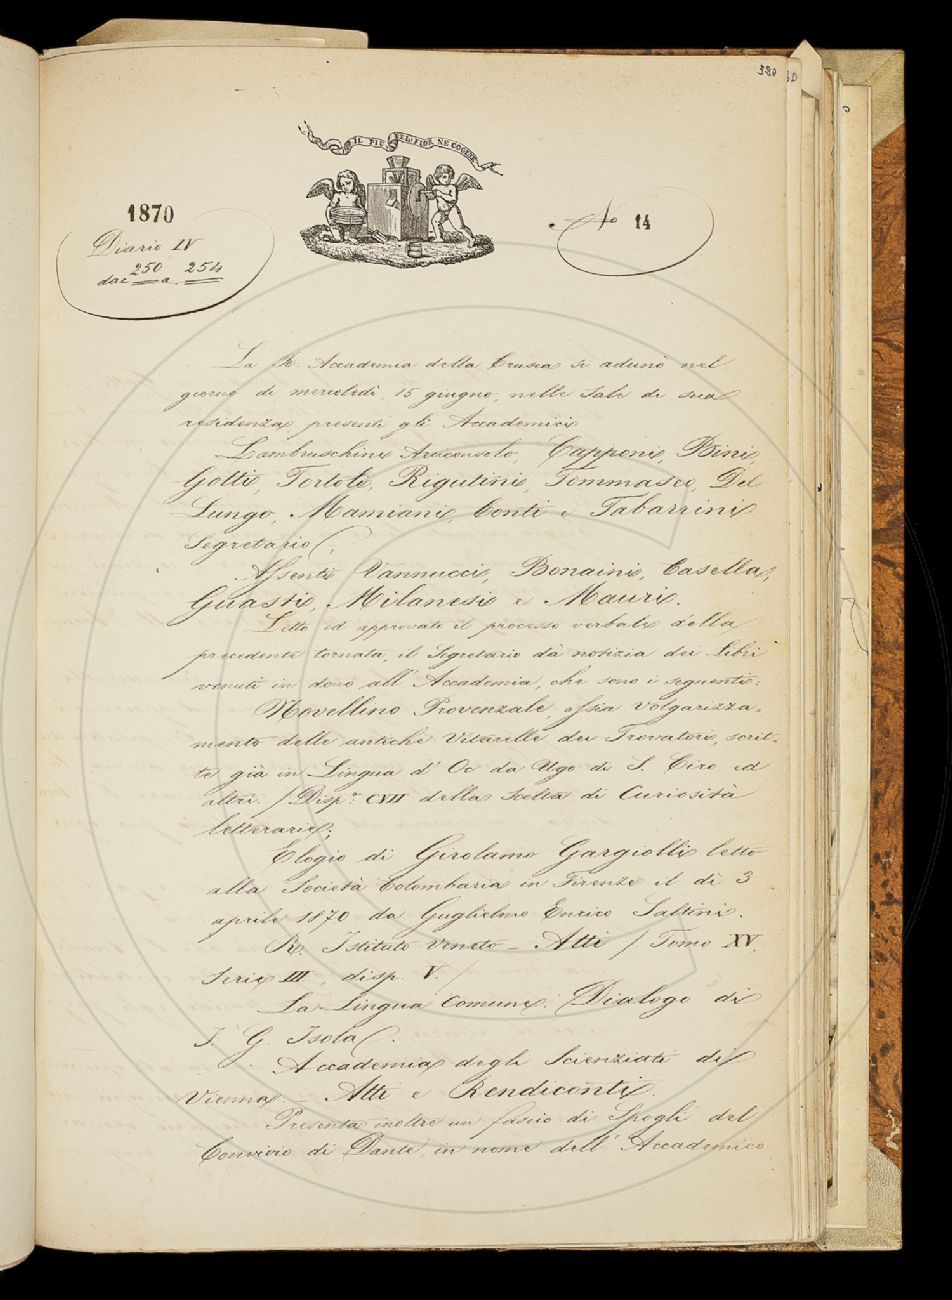 380
IL PIÙ BEL FIOR NE COGLIE
1870
Diario IV
dac 250 a 254
No 14
La R. Accademia della Crusca si adunò nel
giorno di mercoledì, 15 giugno, nelle Sale di sua
residenza, presenti gli Accademici
Lambruschini Arciconsolo, Capponi, Bini,
Gotti, Tortoli, Rigutini, Tommaseo, Del
Lungo, Mamiani, Conti e Tabarrini
Segretario;
Assenti Vannucci, Bonaini, Casella,
Guasti, Milanesi e Mauri.
Letto ed approvato il processo verbale della
precedente tornata, il Segretario dà notizia dei Libri
venuti in dono all'Accademia, che sono i seguenti:
Novellino Provenzale, ossia Volgarizza-
mento delle antiche Vitarelle dei Trovatori, scrit-
te già in Lingua d'Oc da Ugo di S. Ciro ed
altri. / Disp.ª CVII della Scelta di Curiosità
letterarie;
Elogio di Girolamo Gargiolli letto
alla Società Colombaria in Firenze il dì 3
aprile 1870 da Guglielmo Enrico Saltini.
R. Istituto Veneto - Atti / Tomo XV,
Serie III, disp. V. /
La Lingua Comune. Dialogo di
I. G. Isola.
Accademia degli Scienziati di
Vienna. - Atti e Rendiconti.
Presenta inoltre un fascio di Spogli del
Convivio di Dante, in nome dell'Accademico